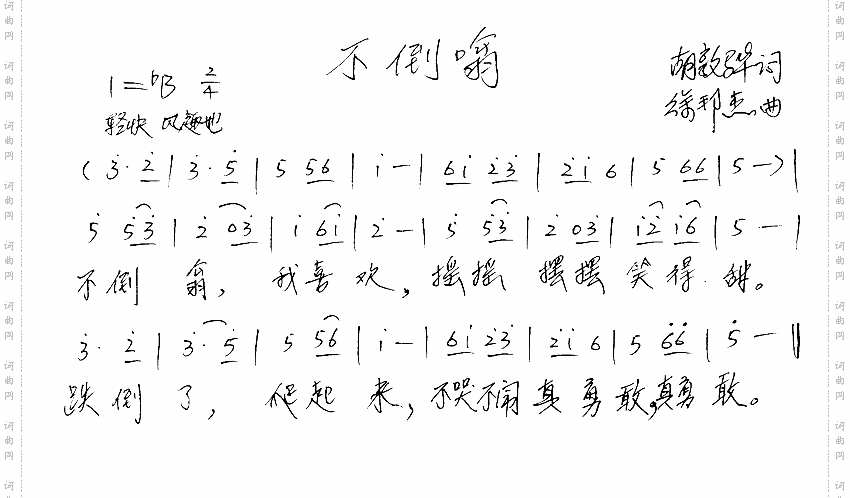 不倒嗡
1=♭B 2/4
胡敦骅词
轻快 风趣地
徐邦杰曲
(3̇· 2̇ | 3̇· 5̇ | 5 56 | i̇ — | 6i̇ 2̇3̇ | 2̇i̇ 6 | 5 66 | 5 —) |
5̇ 5̇3̇ | 2̇ 03̇ | i̇ 6i̇ | 2̇ — | 5̇ 5̇3̇ | 2̇ 03̇ | i̇2̇ i̇6 | 5 — |
不倒 翁, 我喜 欢, 摇摇 摆摆 笑得 甜。
3̇· 2̇ | 3̇· 5̇ | 5 56 | i̇ — | 6i̇ 2̇3̇ | 2̇i̇ 6 | 5 6̇6̇ | 5̇ — ‖
跌 倒 了, 爬起 来, 不哭不闹真 勇 敢,真勇 敢。
词曲网